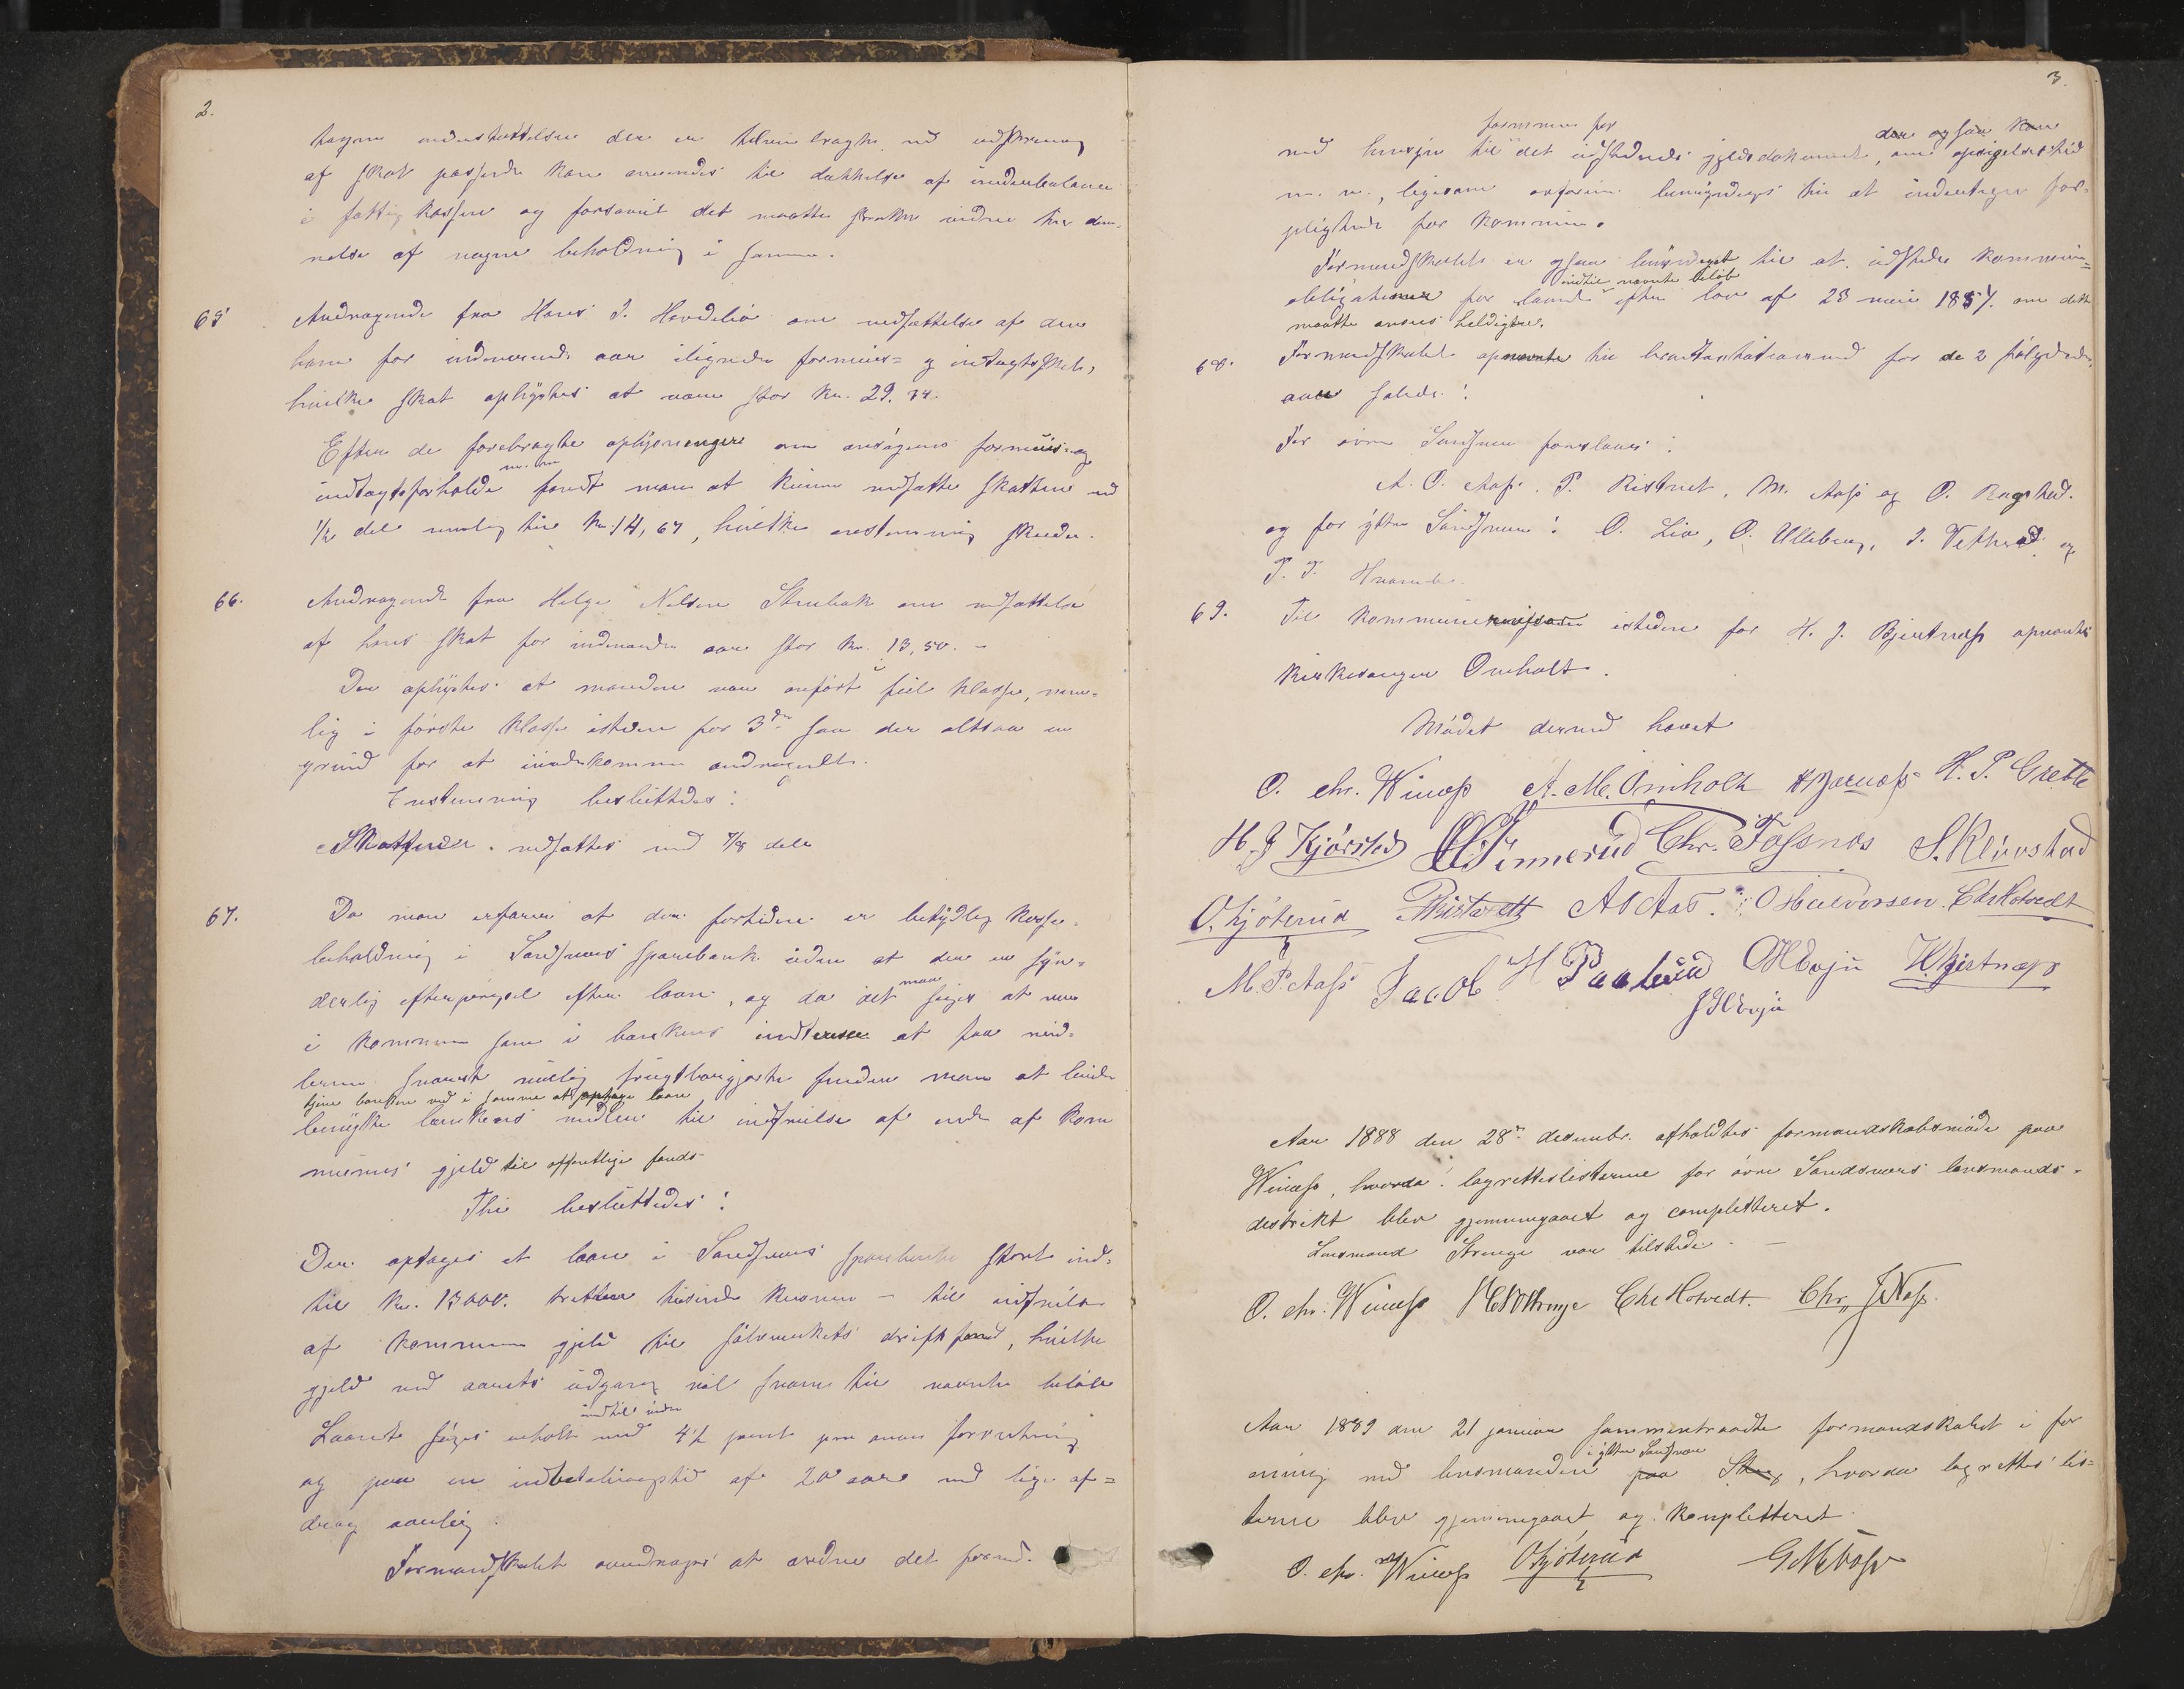 2.
af skat passende kan anvendes til dækkelse af underbalance
i fattigkassen og forsaavidt det maatte række videre til dan-
nelse af nogen beholdning i samme.
65 Andragende fra Hans J. Hovdelia om nedsættelse af den
ham for indeværende aar ilignede formues- og indtægtsskat,
hvilken skat oplystes at være stor kr. 29.34.
Efter de forebragte oplysninger om ansøgerens formues og
indtægtsforholde m. m. fandt man at kunne nedsætte skatten med
1/2 del nemlig til kr. 14,67, hvilket enstemmig skede.
66. Andragende fra Helge Nilsen Stubak om nedsættelse
af hans skat for indeværende aar stor kr. 13,50. -
Der oplystes at manden var anført i feil klasse, nem-
lig i første klasse isteden for 3de saa der altsaa er
grund for at imødekomme andragendet.
Enstemmig besluttedes:
Skatten nedsættes med 7/8 dele
67. Da man erfarer at der for tiden er betydelig kasse-
beholdning i Sandsværs sparebank uden at der er syn-
derlig efterspørgsel efter laan, og da det man siges at være
i kommunen som i bankens interesse at faa mid-
lerne snarest mulig frugtbargjorte finder man at burde
tjene banken med i samme at optage laan
benytte bankens midler til indfrielse af endel af kom
munens gjeld til offentlige fonds
Thi besluttedes:
Der optages et laan i Sandsværs sparebank stort ind-
til kr. 13000. tretten tusinde kroner - til indfrielse
af kommunens gjeld til sølvverkets driftsfond, hvilken
gjeld ved aarets udgang vil svare til nævnte beløb
Laanet søges erholdt med indtil videre 4 1/2 procent pro anno forrentning
og paa en indbetalingstid af 20 aar med lige af-
drag aarlig.
Formandskabet anmodes at ordne det fornød.
3.
med hensyn til det fornævnte udstedende gjeldsdokument, der ogsaa kan om opsigelsestid
m. m., ligesom ordføreren bemyndiges til at undertegne for-
pligtende for kommunen.
Formandskabet er ogsaa bemyndiget til at udstede kommune-
obligationer for laanet indtil nævnte beløb efter lov af 23 mai 1857. om dette
maatte ansees heldigere.
68. Formandskabet opnævnte til brandtaxtationsmænd for de 2 følgende
aar saaledes:
For øvre Sandsvær foreslaaes:
A. O. Aass. P. Ristvet, M. Aass og O. Ragstad.
og for ytre Sandsvær: O. Lia, O. Ulleberg, J. Vetterud og
T. T. Hvambe.
69. Til kommunerevisor istedet for H. J. Bjertnæss opnævntes
kirkesanger Omholt.
Mødet dermed hævet
O. Chr. Winæss A. M. Omholt H. P. Grette
H. J. Kjørsted O. Tinnerud Chr. Fossnæs S. Klovstad
O. Kjøterud P. Ristvedt A O Aas. O Halvorsen. Chr Hotvedt
M. P. Aass Jacob H Paalerud K. Bjertnæss
Aar 1888 den 28de decembr. afholdtes formandskabsmøde paa
Winæss, hvorda lagrettelisterne for øvre Sandsværs lensmands-
distrikt blev gjennemgaaet og completteret.
Lensmand Strenge var tilstede. -
O. Chr. Winæss Chr Hotvedt. Chr. J Næss.
Aar 1889 den 21 januar sammentraadte formandskabet i for
ening med lensmanden i ytre Sandsvær paa, hvorda lagrettes lis-
terne blev gjennemgaaet og komplitteret.
O. Chr. Winæss O Kjøterud